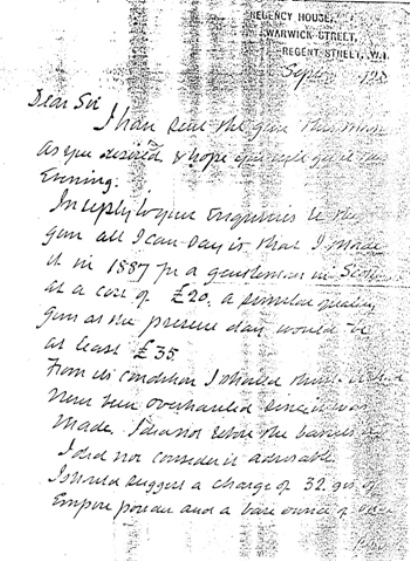 REGENCY HOUSE,
WARWICK STREET,
REGENT STREET, W.1.
Sept
Dear Sir
I have sent the gun this
as you desired & hope you will get it this
Evening.
In reply to your Enquiries re the
gun all I can say is that I made
it in 1887 for a gentleman in
at a cost of £20. a similar quality
gun at the present day would be
at least £35
From its condition I should think it has
never been overhauled since it was
made. I did not rebore the barrels as
I did not consider it advisable
I should suggest a charge of 32 grs of
Empire powder and a bare ounce of